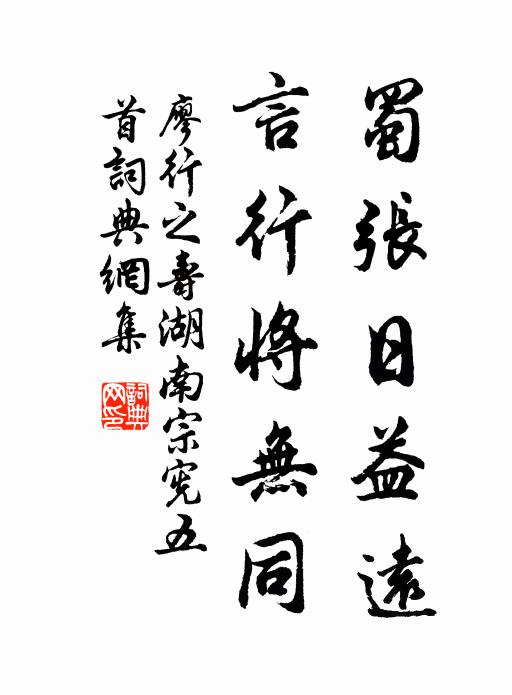 蜀張日益遠
言行將無同
廖行之壽湖南宗宪五
首詞典網集
詞典網印